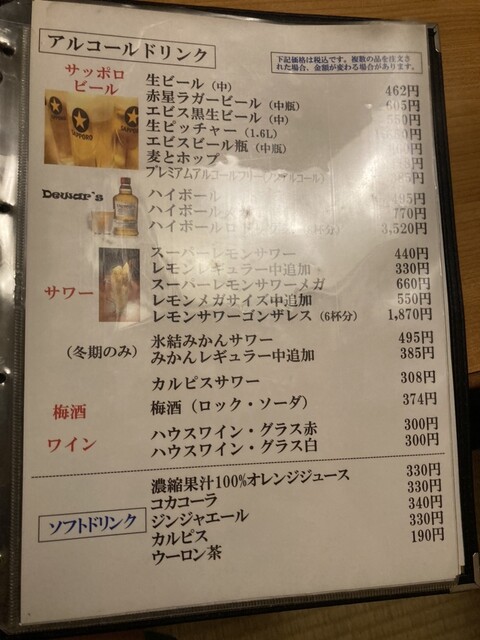 アルコールドリンク
下記価格は税込です。複数の品を注文された場合、金額が変わる場合があります。
サッポロ
ビール
生ビール（中） 462円
赤星ラガービール（中瓶） 605円
エビス黒生ビール（中） 550円
生ピッチャー（1.6L）
エビスビール瓶（中瓶）
麦とホップ
プレミアムアルコールフリー（ノンアルコール）
Dewar's
ハイボール 495円
ハイボール 770円
ハイボール 3,520円
サワー
スーパーレモンサワー 440円
レモンレギュラー中追加 330円
スーパーレモンサワーメガ 660円
レモンメガサイズ中追加 550円
レモンサワーゴンザレス（6杯分） 1,870円
（冬期のみ）
氷結みかんサワー 495円
みかんレギュラー中追加 385円
カルピスサワー 308円
梅酒
梅酒（ロック・ソーダ） 374円
ワイン
ハウスワイン・グラス赤 300円
ハウスワイン・グラス白 300円
ソフトドリンク
濃縮果汁100%オレンジジュース 330円
コカコーラ 330円
ジンジャエール 340円
カルピス 330円
ウーロン茶 190円